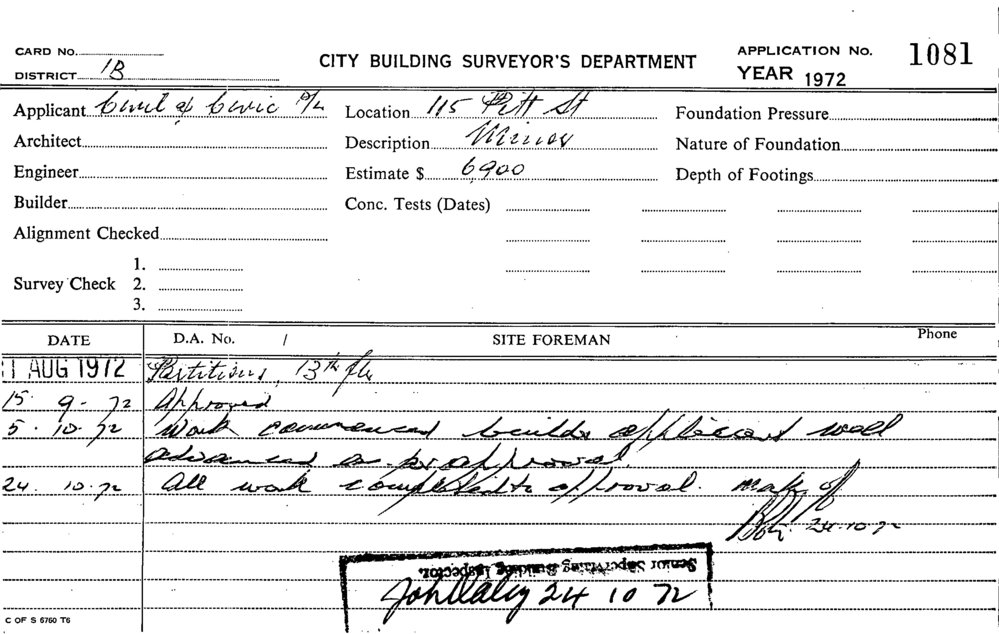 CARD No.
DISTRICT 1B
CITY BUILDING SURVEYOR'S DEPARTMENT
APPLICATION No. 1081
YEAR 1972
Applicant Civil & Civic P/L
Location 115 Pitt St
Foundation Pressure
Architect
Description Minor
Nature of Foundation
Engineer
Estimate $ 6,900
Depth of Footings
Builder
Conc. Tests (Dates)
Alignment Checked
Survey Check
1.
2.
3.
DATE D.A. No. / SITE FOREMAN Phone
1 AUG 1972 Partitions, 13th flr
15. 9. 72 Approved
5. 10. 72 Work commenced builder applicant well
advanced as per approval.
24. 10. 72 All work completed to approval. Mark off
24.10.72
Senior Supervising Building Inspector.
24 10 72
C OF S 6760 T6